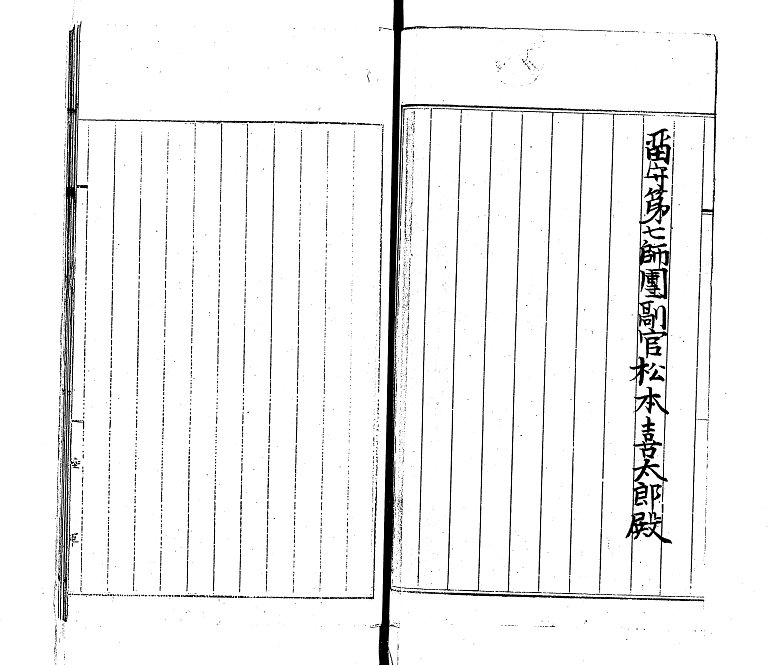 留守第七師團副官松本喜太郎殿